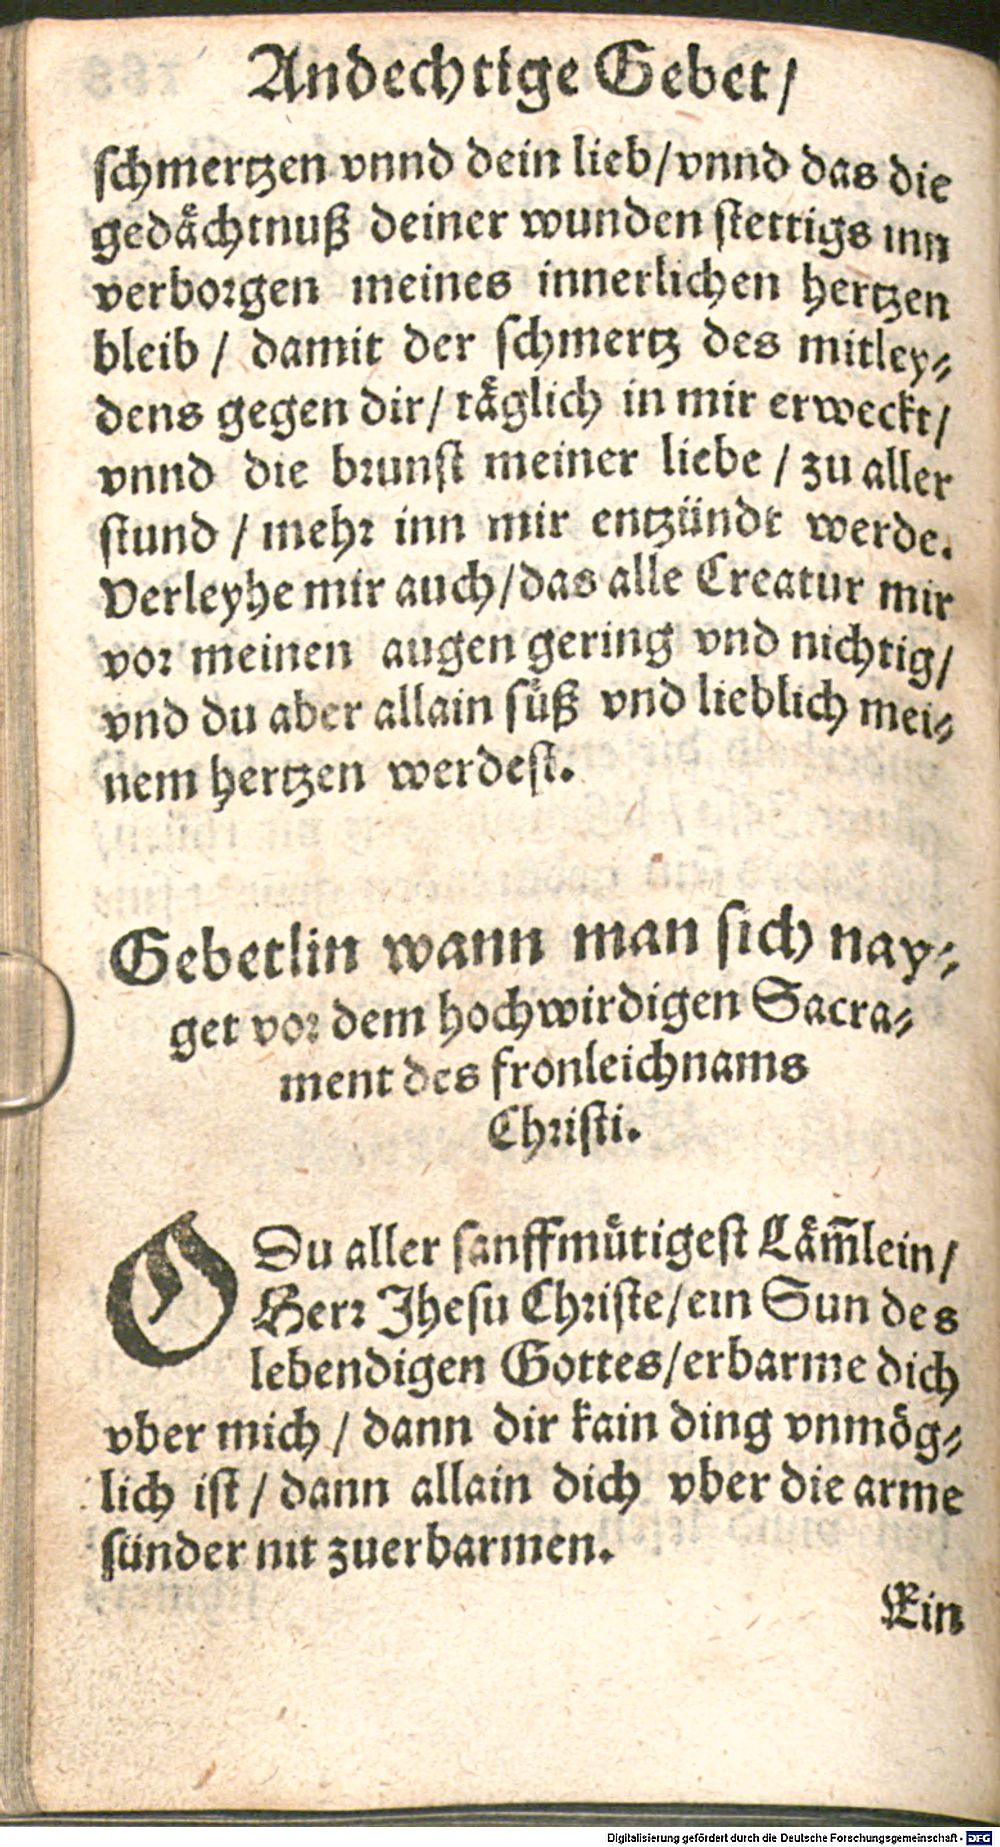 Andechtige Gebet/
schmertzen vnnd dein lieb/vnnd das die
gedaͤchtnuß deiner wunden stettigs inn
verborgen meines innerlichen hertzen
bleib / damit der schmertz des mitley⸗
dens gegen dir/ taͤglich in mir erweckt/
vnnd die brunst meiner liebe / zu aller
stund / mehr inn mir entzündt werde.
Verleyhe mir auch/das alle Creatur mir
vor meinen augen gering vnd nichtig/
vnd du aber allain suͤß vnd lieblich mei⸗
nem hertzen werdest.
Gebetlin wann man sich nay⸗
get vor dem hochwirdigen Sacra⸗
ment des fronleichnams
Christi.
O Du aller sanffmuͤtigest Laͤm̃lein/
Herr Jhesu Christe/ein Sun des
lebendigen Gottes/erbarme dich
vber mich / dann dir kain ding vnmoͤg⸗
lich ist / dann allain dich vber die arme
sünder nit zuerbarmen.
Ein
Digitalisierung gefördert durch die Deutsche Forschungsgemeinschaft - DFG